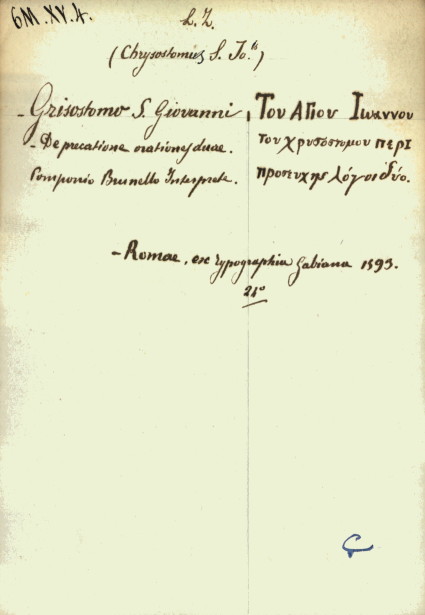 6M.XV.4.
L.Z.
(Chrysostomus S. Jo.)
- Grisostomo S. Giovanni, Του Αγιου Ιωαννου
- De precatione orationes duae. του χρυσοστομου περι
Pomponio Brunello Interprete. προσευχης λόγοι δύο.
- Romae, ex typographia Gabiana 1593.
21°